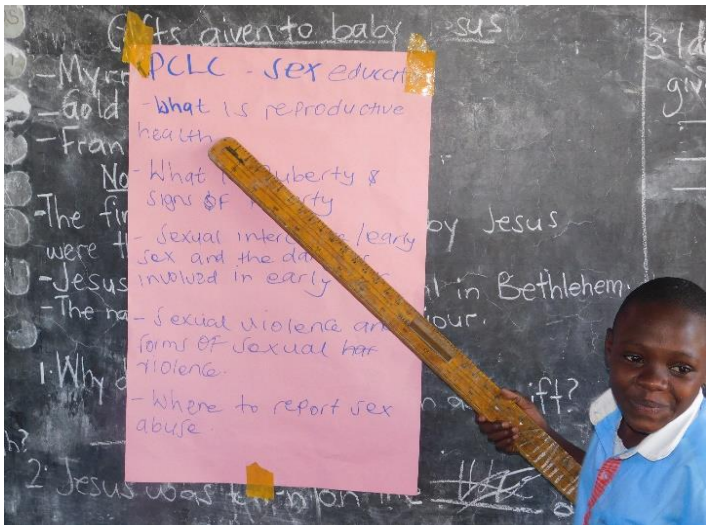 Gifts given to baby Jesus
- Myrr
- Gold
- Fran
No
- The fir by Jesus
were th
- Jesus in Bethlehem.
- The na our.
1. Why d ift?
h?
2. Jesus was born on the
3. Id
giv
PCLC - Sex educat
- What is reproductive
health
- What Puberty &
signs OF
- Sexual inter /early
sex and the da
involved in early
- Sexual violence an
forms OF sexual har
violence.
- Where to report sex
abuse.